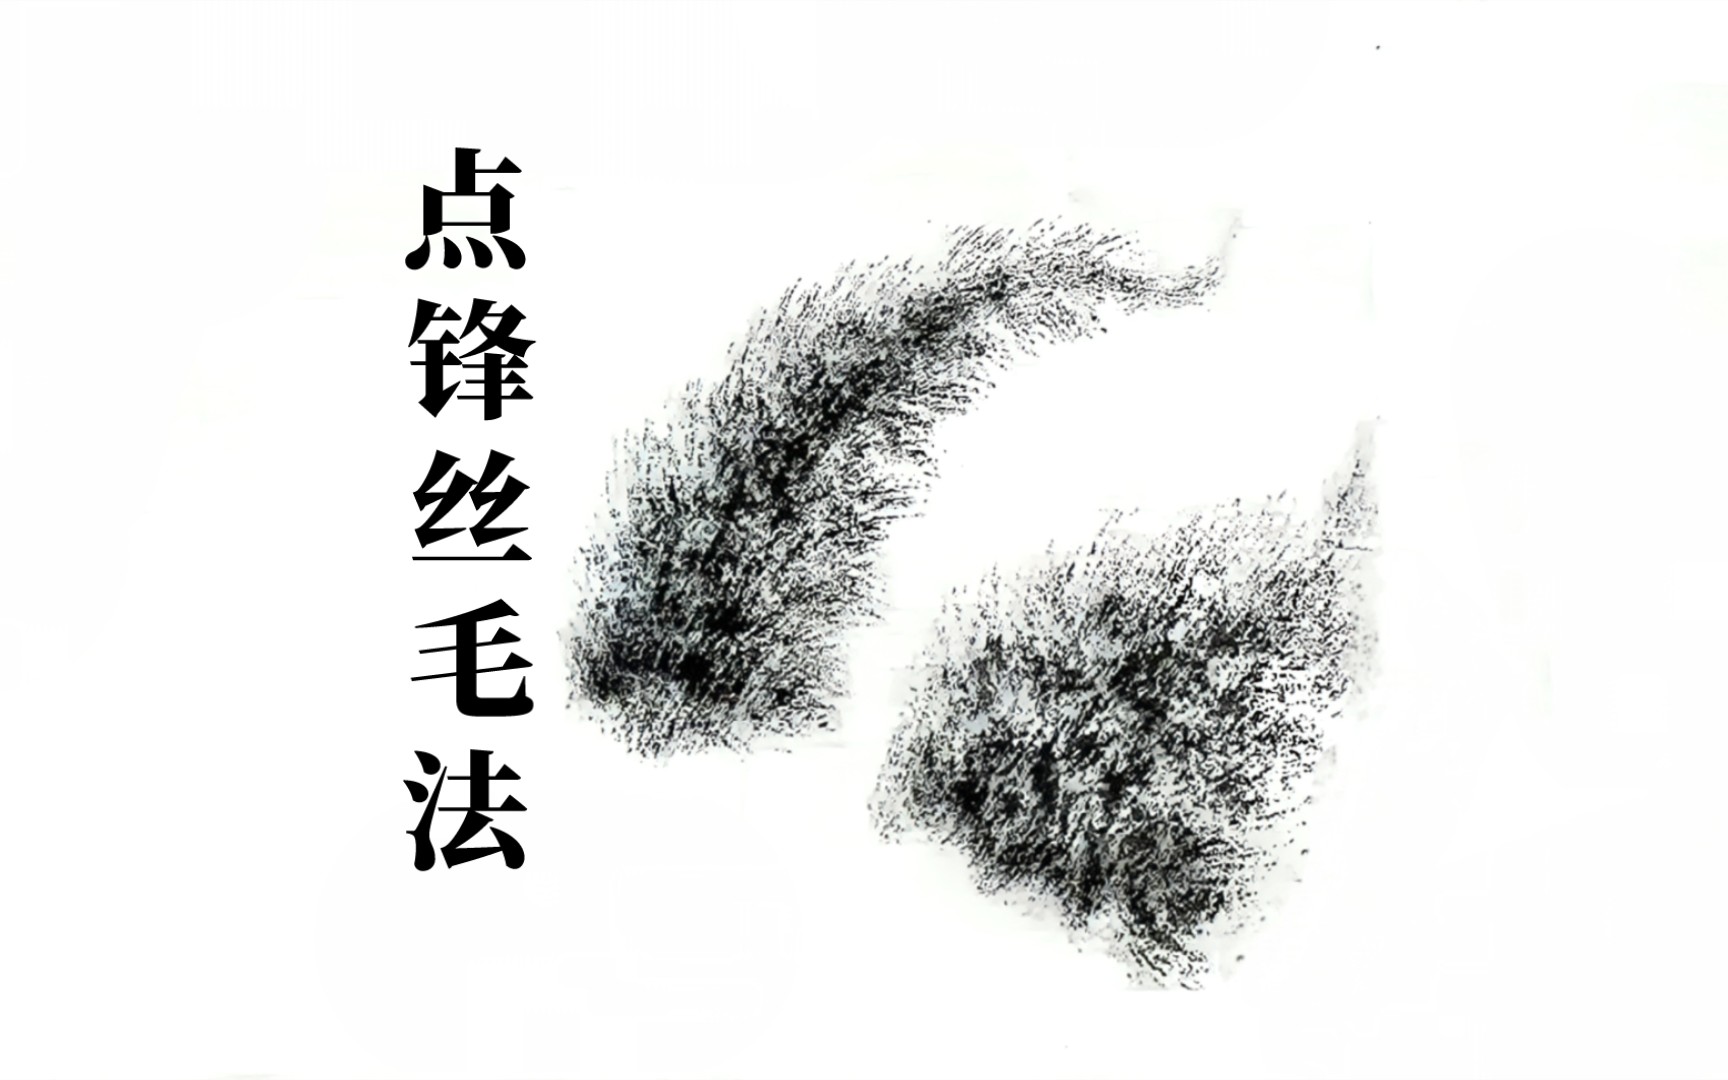 点锋丝毛法